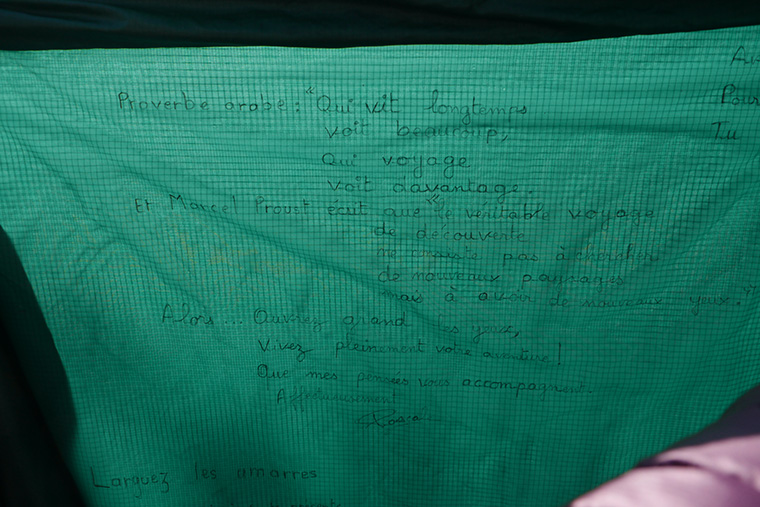 Proverbe arabe : "Qui vit longtemps
voit beaucoup,
Qui voyage
voit davantage.
Et Marcel Proust écrit que "le véritable voyage
de découverte
ne consiste pas à chercher
de nouveaux paysages
mais à avoir de nouveaux yeux."
Alors ... Ouvrez grand les yeux,
Vivez pleinement votre aventure !
Que mes pensées vous accompagnent
Affectueusement
Larguez les amarres
Pour
Tu